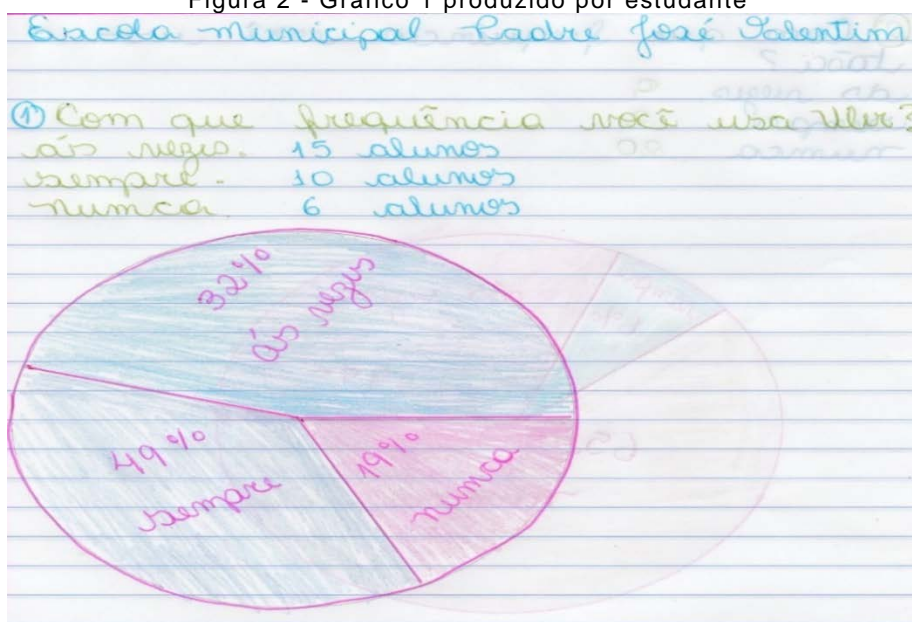 Figura 2 - Gráfico 1 produzido por estudante
Escola Municipal Padre José Valentim
1 Com que frequência você usa
ás vezes. 15 alunos
sempre. 10 alunos
numca. 6 alunos
32%
ás vezes
49%
sempre
19%
numca